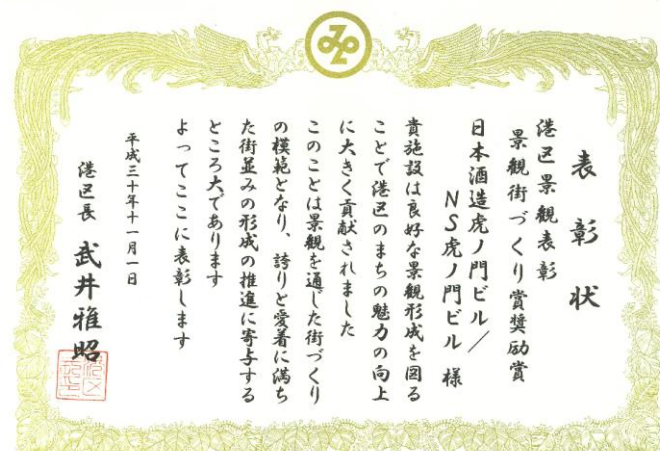 表彰状
港区景観表彰
景観街づくり賞奨励賞
日本酒造虎ノ門ビル／
NS虎ノ門ビル 様
貴施設は良好な景観形成を図る
ことで港区のまちの魅力の向上
に大きく貢献されました
このことは景観を通じた街づくり
の模範となり、誇りと愛着に満ち
た街並みの形成の推進に寄与する
ところ大であります
よってここに表彰します
平成三十年十一月一日
港区長 武井雅昭